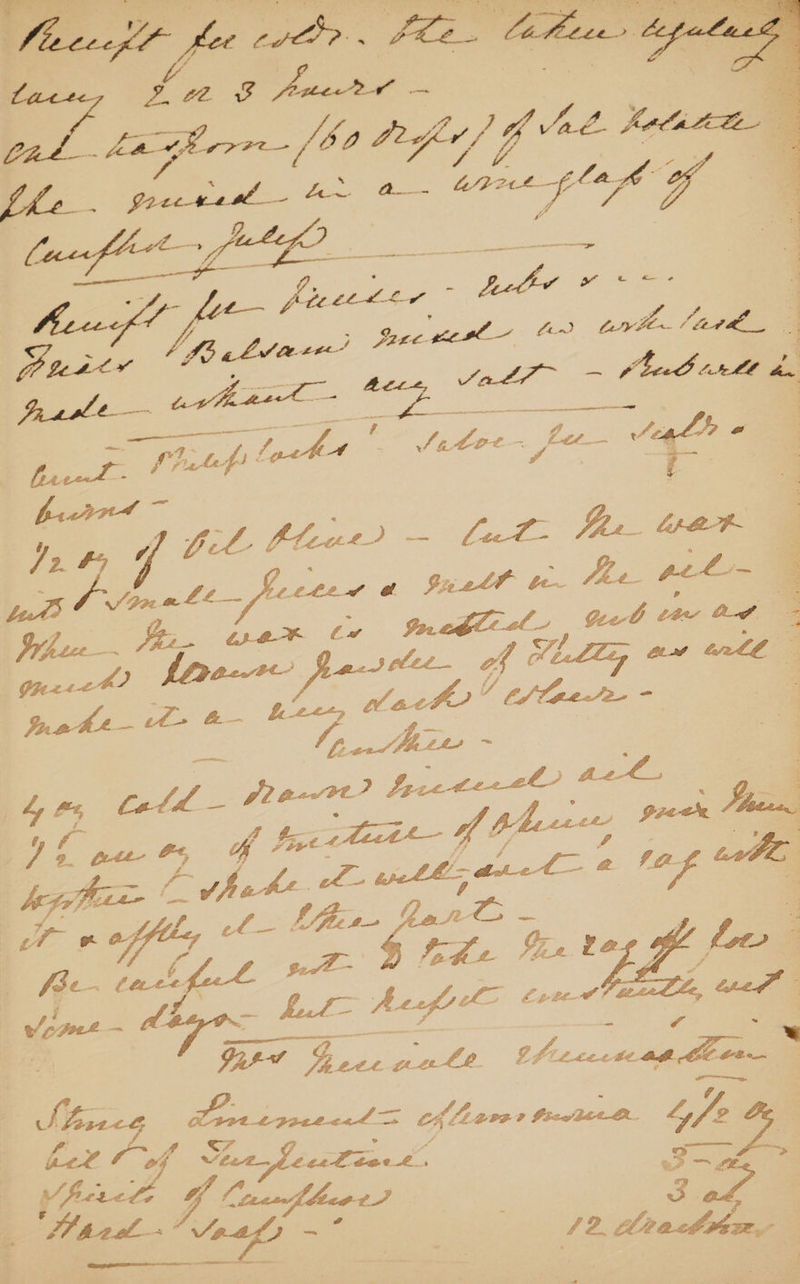 Receipt for colds. To be taken regularly
every 2 or 3 hours -
one teaspoon (60 drops) of Sal Volatile
to be mixed in a wine glass of
Camphor Julep
Receipt for bruises - rubs & ...
Friars Balsam mixed in with lard
made without any salt - Rub well in
Aunt Philip locks' Salve for scalds &
burns -
1/2 oz of Oil Olive - Cut the wax
into small pieces & melt in the oil -
When the wax is melted, rub in as
much brown powder of Tutty as will
make it a very dark colour -
Another -
4 oz Cold drawn linseed oil
1/2 an oz of tincture of Opium mix them
together - shake it well, wet a rag with
it & apply it to the part -
Be careful not to take the rag off for
some days - but keep it constantly wet
Mrs rheumatism
Strong Liniment ammonia 4 1/2 oz
Oil of Turpentine 3 - oz
Spirits of Camphor 3 oz
Hard Soap - 12 drachms